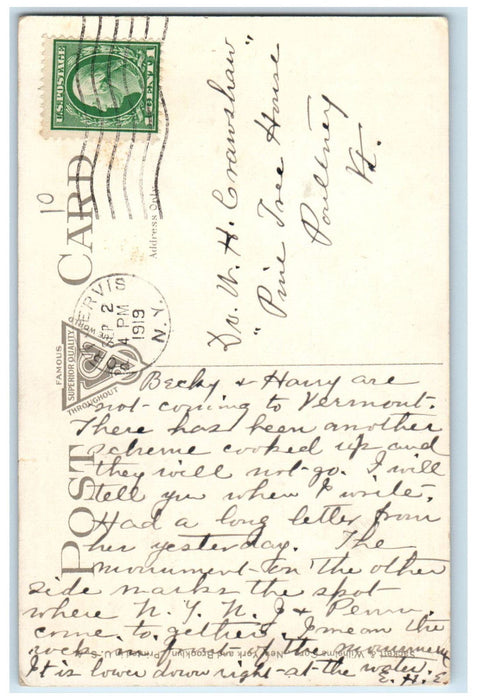 U.S. POSTAGE
1 CENT 1
10
POST CARD
Address Only
ERVIS
SEP 2
4 PM
1919
N.Y.
FAMOUS
SUPERIOR QUALITY
THROUGHOUT
THE WORLD
Dr. W. H. Crawshaw
"Pine Tree House
Poultney
Vt.
Becky & Harry are
not coming to Vermont.
There has been another
scheme cooked up and
they will not go. I will
tell you when I write.
Had a long letter from
her yesterday. The
monument on the other
side marks the spot
where N.Y. N.J & Penn.
come to gether, I mean the
rock in front of the monument
It is lower down right at the water.
E. H. E.
New York and Brooklyn. Printed in U.S.